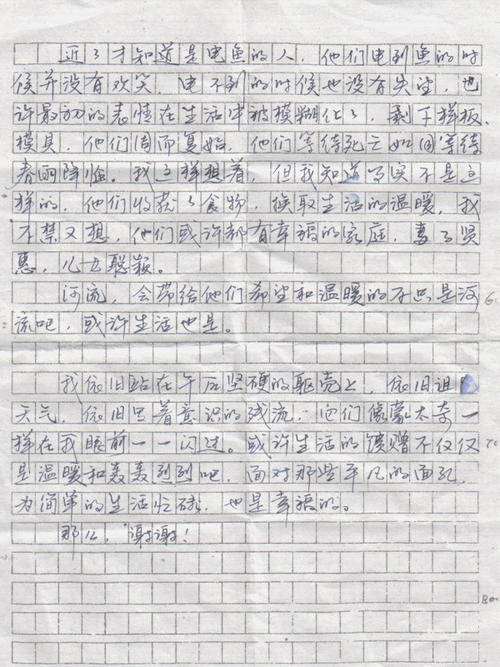 近了才知道是电鱼的人，他们电到鱼的时
候并没有欢笑，电不到的时候也没有失望，也
许最初的表情在生活中被模糊化了，剩下样板、
模具，他们周而复始，他们等待死亡如同等待
春雨降临。我这样想着，但我知道写实不是这
样的，他们收获了食物，换取生活的温暖，我
不禁又想，他们或许都有幸福的家庭，妻子贤
惠，儿女聪颖。
河流，会带给他们希望和温暖的不只是河
流吧，或许生活也是。
我依旧站在午后坚硬的躯壳上，依旧诅
天气，依旧思着意识的残流，它们像蒙太奇一
样在我眼前一一闪过。或许生活的馈赠不仅仅
是温暖和轰轰烈烈吧，面对那些平凡的面孔，
为简单的生活忙碌，也是幸福的。
那么，谢谢！